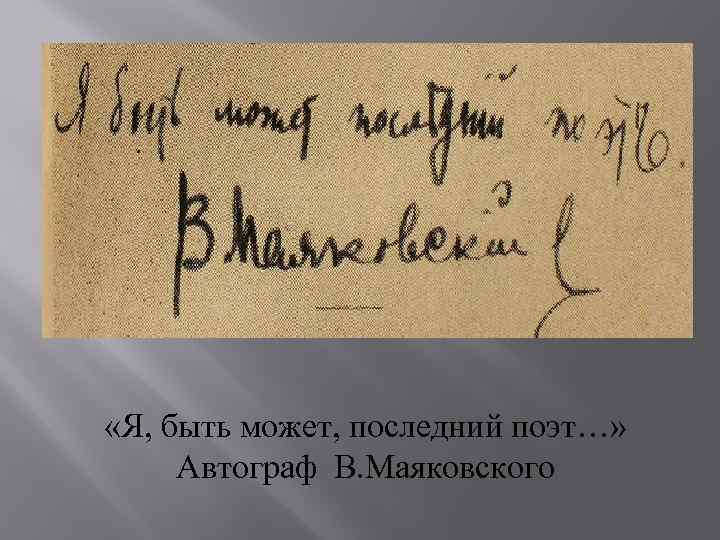 Я быть может последний поэтъ.
В Маяковскій
«Я, быть может, последний поэт…»
Автограф В.Маяковского